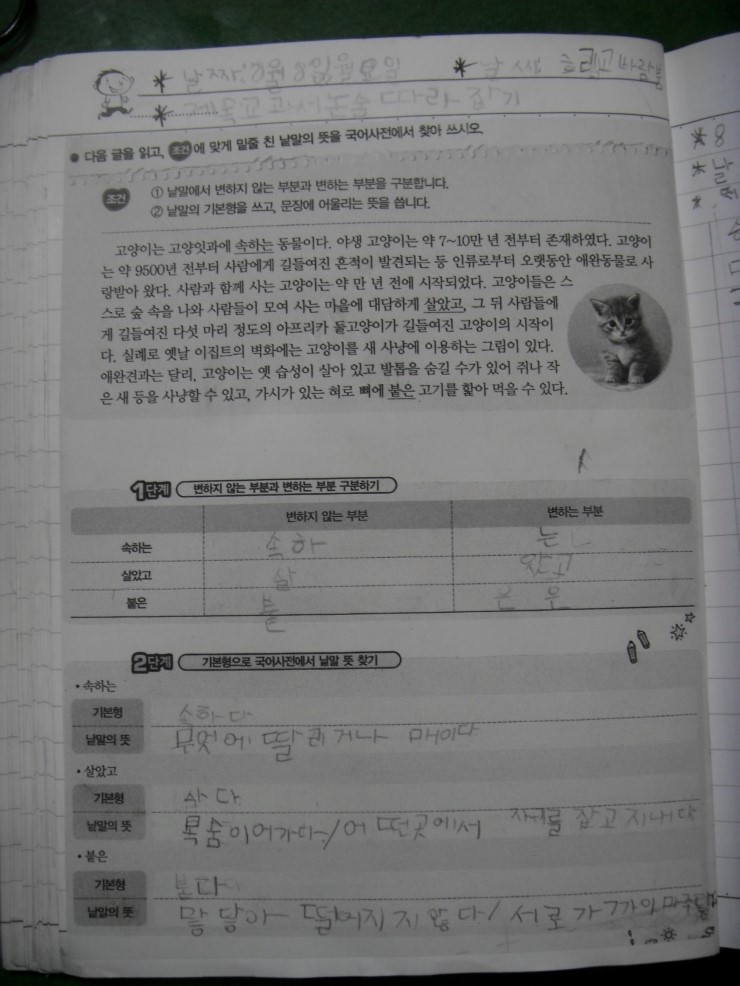 * 날짜:8월 8일 월요일 * 날씨: 흐리고 바람붐
* 제목:교과서 논술 따라 잡기
• 다음 글을 읽고, 조건에 맞게 밑줄 친 낱말의 뜻을 국어사전에서 찾아 쓰시오.
조건 ① 낱말에서 변하지 않는 부분과 변하는 부분을 구분합니다.
② 낱말의 기본형을 쓰고, 문장에 어울리는 뜻을 씁니다.
고양이는 고양잇과에 속하는 동물이다. 야생 고양이는 약 7~10만 년 전부터 존재하였다. 고양이
는 약 9500년 전부터 사람에게 길들여진 흔적이 발견되는 등 인류로부터 오랫동안 애완동물로 사
랑받아 왔다. 사람과 함께 사는 고양이는 약 만 년 전에 시작되었다. 고양이들은 스
스로 숲 속을 나와 사람들이 모여 사는 마을에 대담하게 살았고, 그 뒤 사람들에
게 길들여진 다섯 마리 정도의 아프리카 들고양이가 길들여진 고양이의 시작이
다. 실례로 옛날 이집트의 벽화에는 고양이를 새 사냥에 이용하는 그림이 있다.
애완견과는 달리, 고양이는 옛 습성이 살아 있고 발톱을 숨길 수가 있어 쥐나 작
은 새 등을 사냥할 수 있고, 가시가 있는 혀로 뼈에 붙은 고기를 핥아 먹을 수 있다.
1단계 변하지 않는 부분과 변하는 부분 구분하기
변하지 않는 부분 변하는 부분
속하는 속하 는
살았고 살 았고
붙은 붙 은
2단계 기본형으로 국어사전에서 낱말 뜻 찾기
• 속하는
기본형 속하다
낱말의 뜻 무엇에 딸리거나 매이다
• 살았고
기본형 사다
낱말의 뜻 목숨이어가다/어떤곳에서 자리를 잡고 지내다
• 붙은
기본형 붇다
낱말의 뜻 맞닿아 떨어지지 않다/ 서로 가까이 마주
* 8
* 날
*